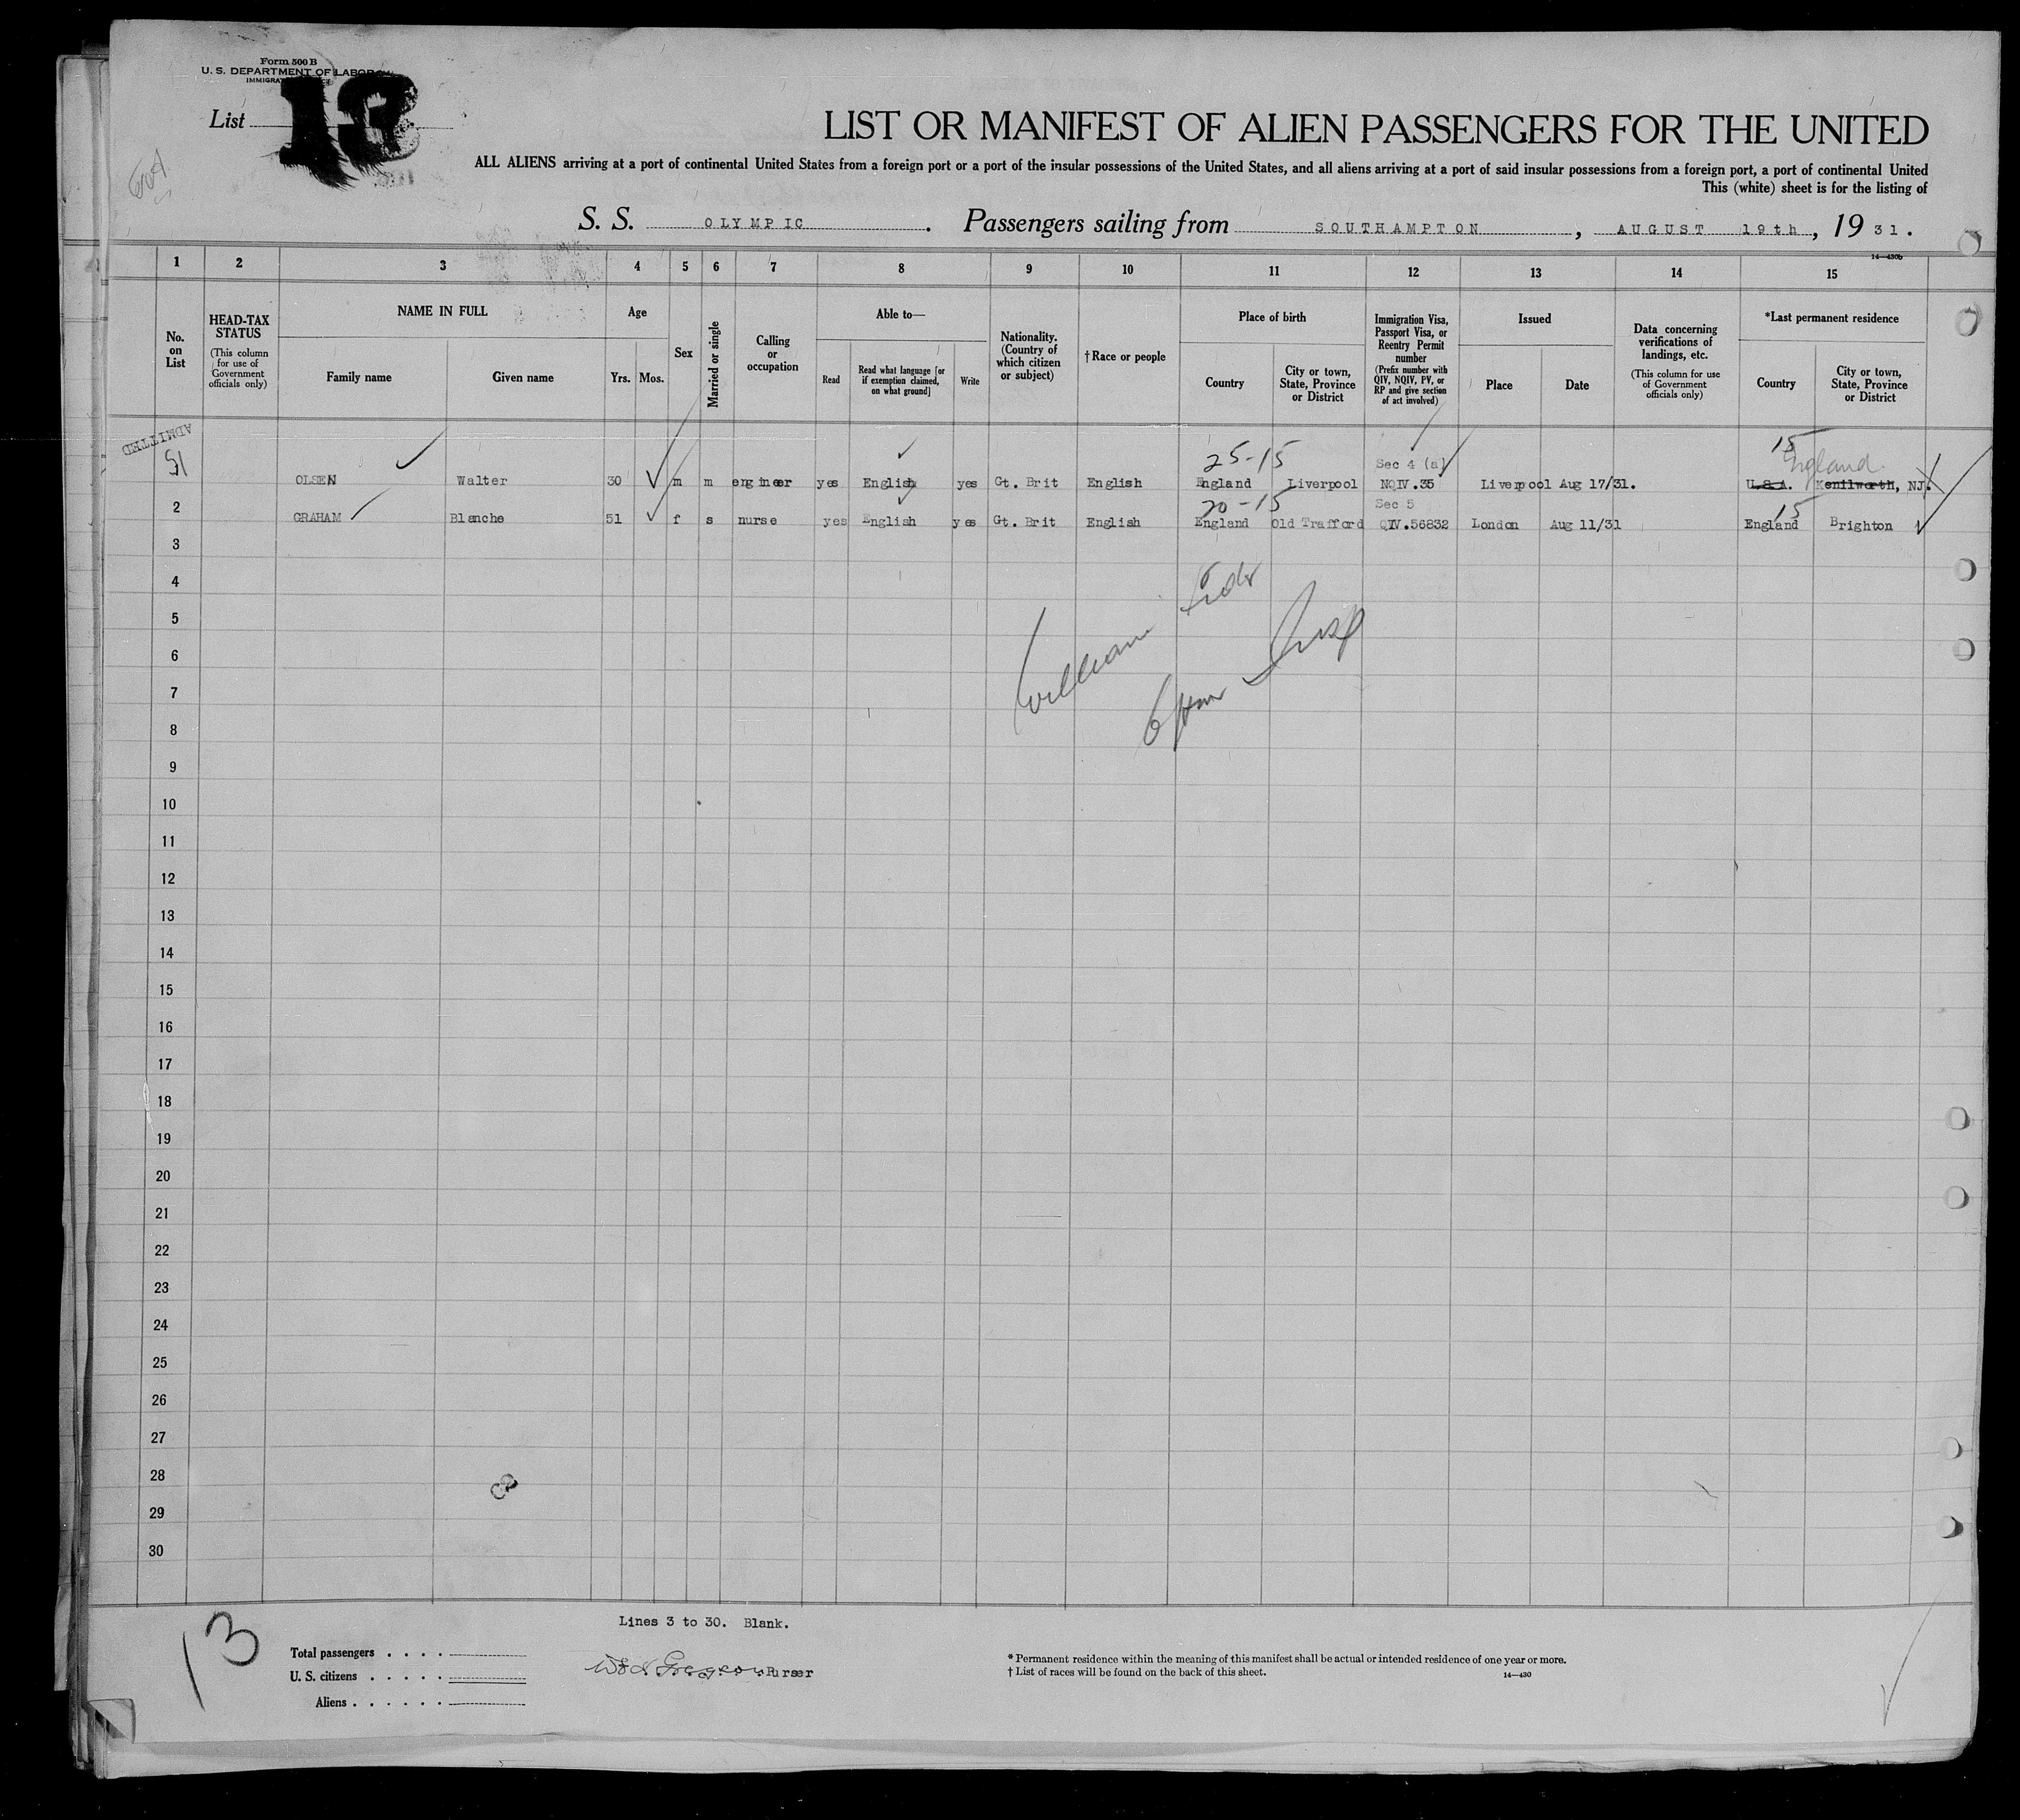 Form 500 B
U. S. DEPARTMENT OF LABOR
List 13
LIST OR MANIFEST OF ALIEN PASSENGERS FOR THE UNITED
ALL ALIENS arriving at a port of continental United States from a foreign port or a port of the insular possessions of the United States, and all aliens arriving at a port of said insular possessions from a foreign port, a port of continental United
This (white) sheet is for the listing of
S. S. OLYMPIC. Passengers sailing from SOUTHAMPTON, AUGUST 19th, 19 31.
14—430b
1 2 3 4 5 6 7 8 9 10 11 12 13 14 15
No. on List
HEAD-TAX STATUS (This column for use of Government officials only)
NAME IN FULL
Family name Given name
Age
Yrs. Mos.
Sex
Married or single
Calling or occupation
Able to—
Read Read what language [or if exemption claimed, on what ground] Write
Nationality. (Country of which citizen or subject)
†Race or people
Place of birth
Country City or town, State, Province or District
Immigration Visa, Passport Visa, or Reentry Permit number (Prefix number with QIV, NQIV, PV, or RP and give section of act involved)
Issued
Place Date
Data concerning verifications of landings, etc. (This column for use of Government officials only)
*Last permanent residence
Country City or town, State, Province or District
ADMITTED
25-15 Sec 4 (a) 15 England
OLSEN Walter 30 m m engineer yes English yes Gt. Brit English England Liverpool NQIV.35 Liverpool Aug 17/31. U.S.A. Kenilworth, NJ.
20-15 Sec 5 15
2 GRAHAM Blanche 51 f s nurse yes English yes Gt. Brit English England Old Trafford QIV.56832 London Aug 11/31 England Brighton
3
4
5
William
6
7
8
9
10
11
12
13
14
15
16
17
18
19
20
21
22
23
24
25
26
27
28
29
30
Lines 3 to 30. Blank.
13
Total passengers . . . .
U. S. citizens . . . . .
Aliens . . . . . .
Purser
* Permanent residence within the meaning of this manifest shall be actual or intended residence of one year or more.
† List of races will be found on the back of this sheet.
14—430